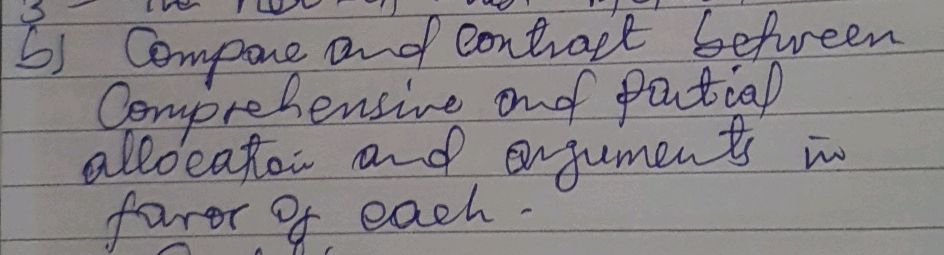 b) Compare and contrast between
Comprehensive and partial
allocation and arguments in
favor of each.